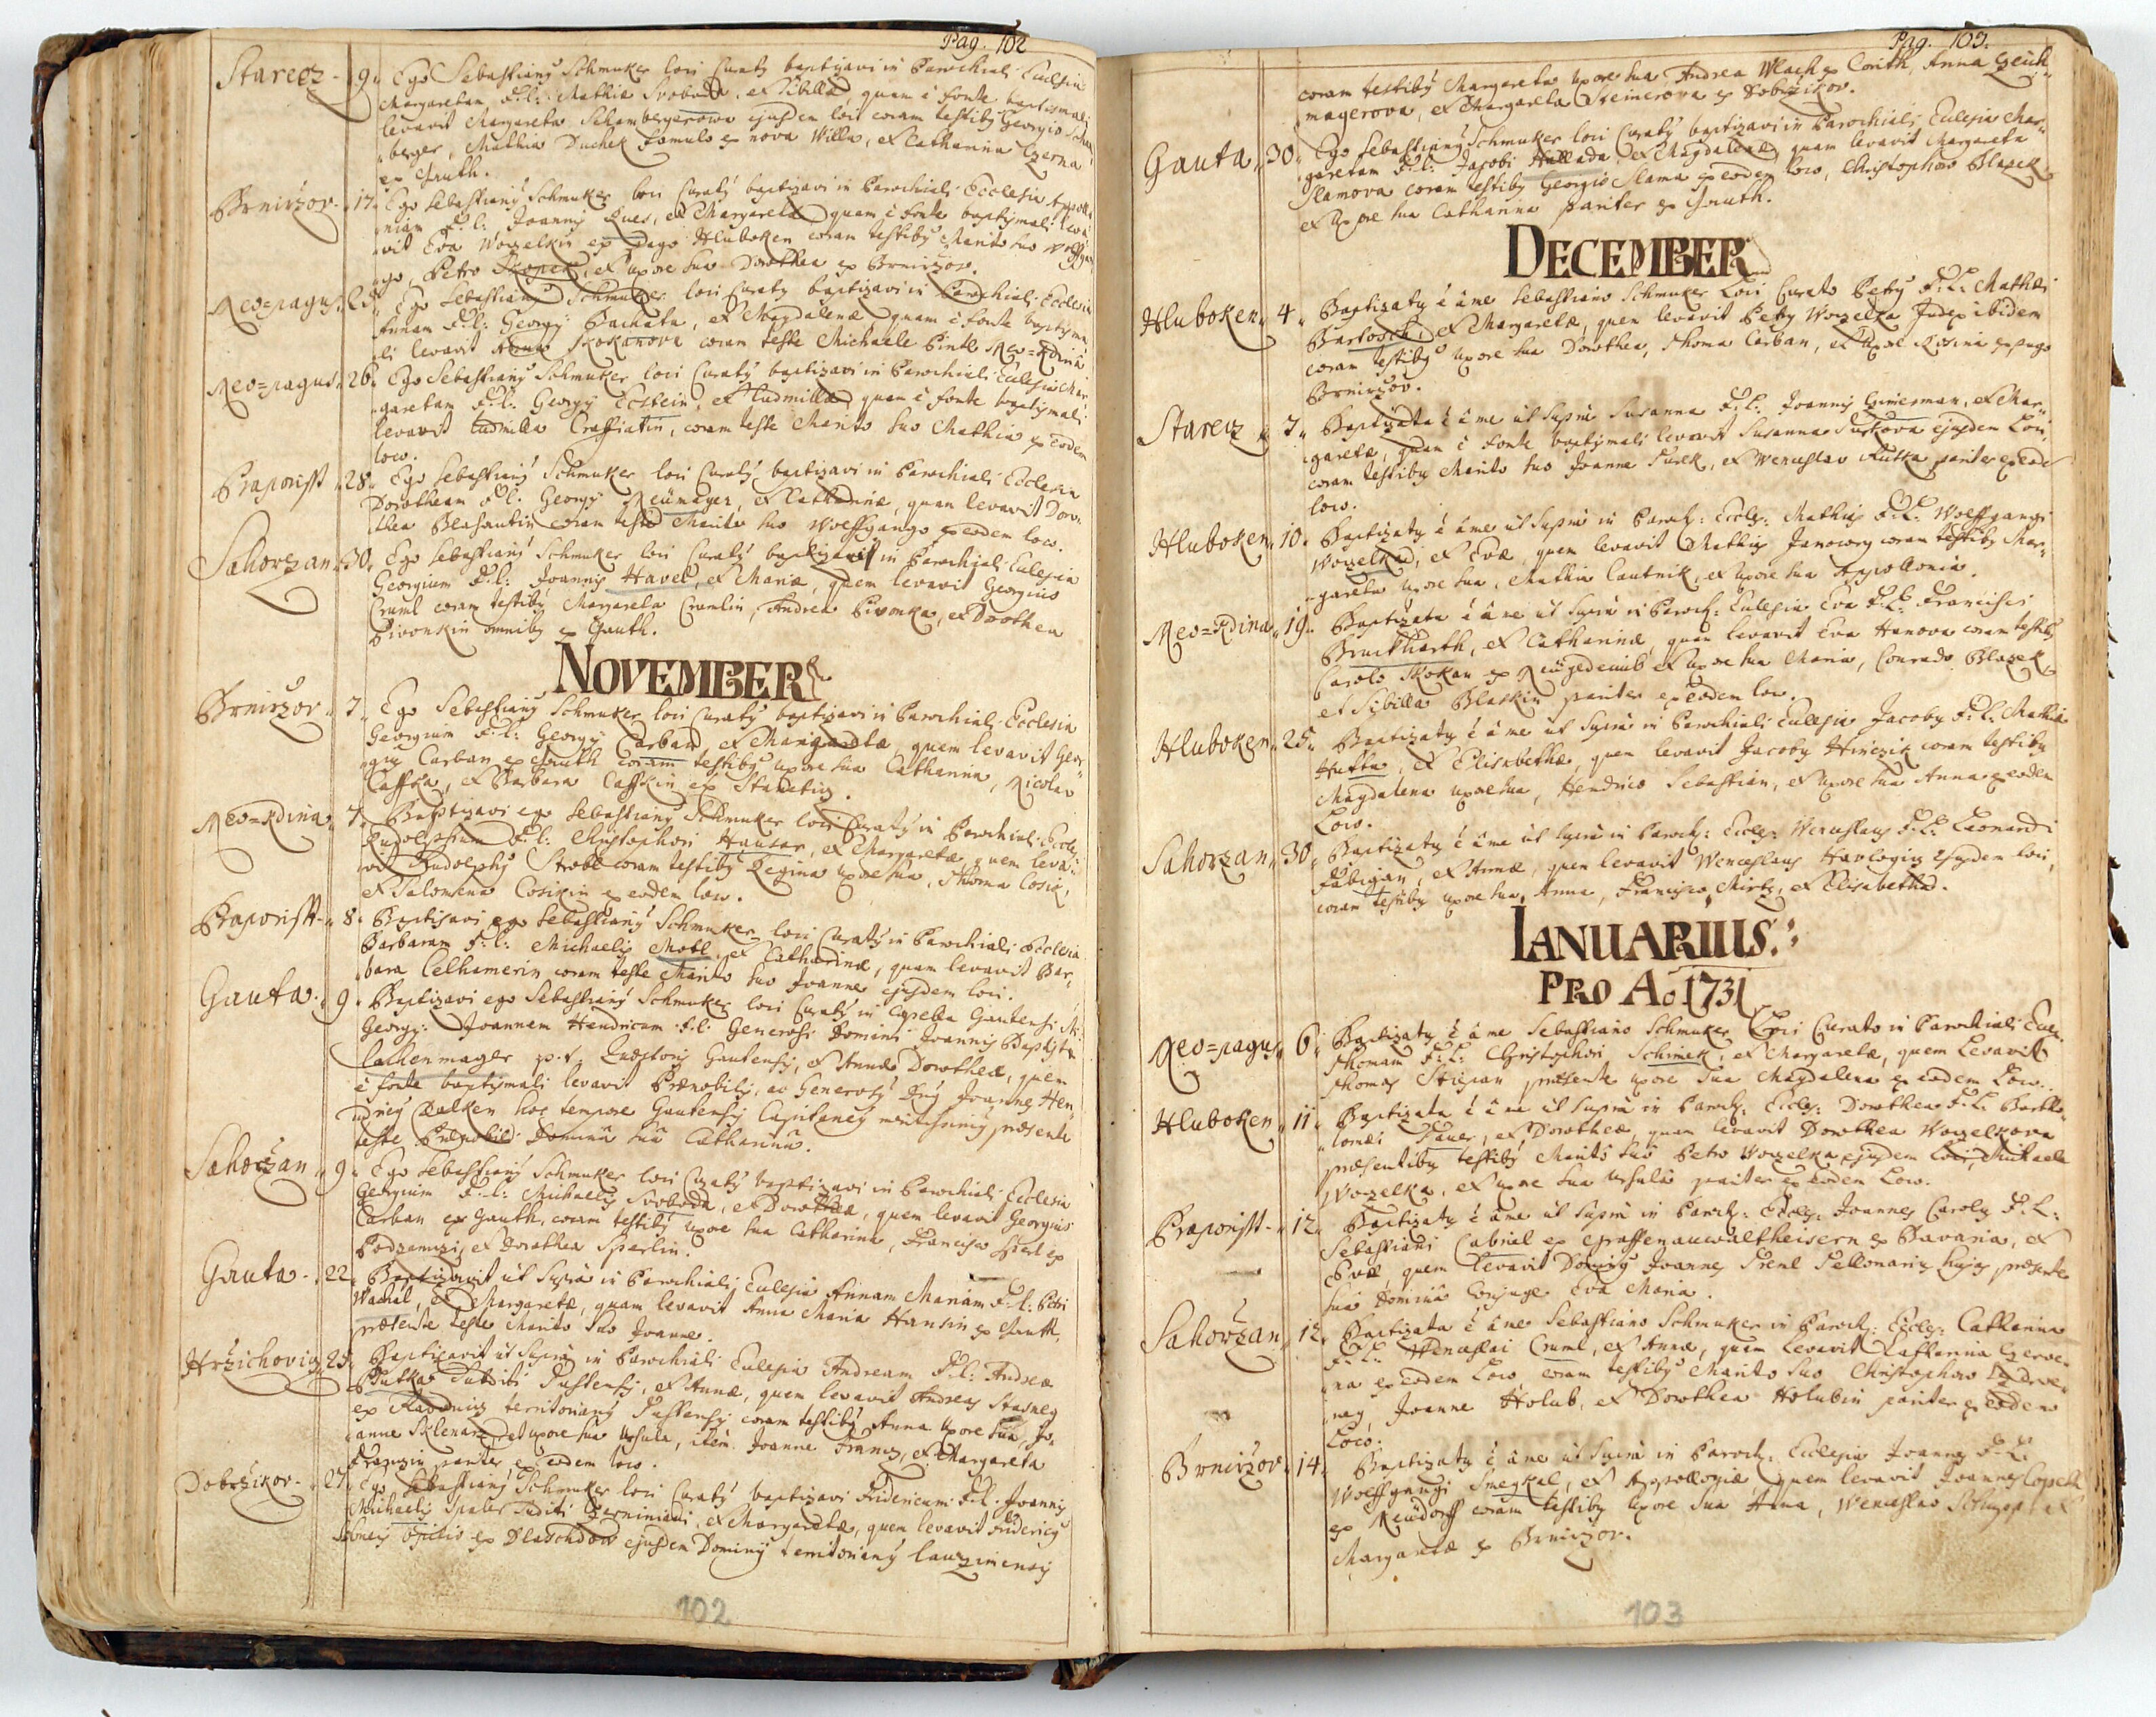 Pag. 102
Starecz 9. Ego Sebastianus Schmuker loci Curatus baptizavi in Parochiali Ecclesia
Margaretam F: l: Mathiæ Svoboda, et Sibillæ, quam è fonte baptismali
levavit Margareta Schambergerowa ejusdem loci coram testibus Georgio
berger, Mathia Duchek famulo ex nova Villa, et Catharina Czerna
ex Gauth.
Brnirzov 17. Ego Sebastianus Schmuker loci Curatus baptizavi in Parochiali Ecclesia Appollo
niam F: l: Joannis Kues, et Margaretæ quam è fonte baptismali leva
vit Eva Worzelkin ex pago Hluboken coram testibus Marito suo Wolffgan
go, Petro Skopek, et uxore sua Dorothea ex Brnirzov.
Neo=pagus 25. Ego Sebastianus Schmuker loci Curatus baptizavi in Parochiali Ecclesia
Annam F: l: Georgij Bachata, et Magdalenæ quam è fonte baptisma
li levavit Anna Skokanova coram teste Michaele Pintl Neo=Kdina
Neo=pagus 26. Ego Sebastianus Schmuker loci Curatus baptizavi in Parochiali Ecclesia Mar
garetam F: l: Georgij Eckstein, et Ludmillæ quam è fonte baptismali
levavit Ludmilla Craffiatin, coram teste Marito suo Mathia ex eodem
loco.
Praporist 28. Ego Sebastianus Schmuker loci Curatus baptizavi in Parochiali Ecclesia
Dorotheam F: l: Georgij Neümayer, et Catharinæ, quam levavit Doro
thea Blahautin coram teste Marito suo Wolffgango ex eodem loco.
Sahorzan 30. Ego Sebastianus Schmuker loci Curatus baptizavit in Parochiali Ecclesia
Georgium F: l: Joannis Havel, et Mariæ, quem levavit Georgius
Cruml coram testibus Margareta Crumlin, Andrea Pivonka, et Dorothea
Pivonkin omnibus ex Gauth.
NOVEMBER
Brnirzov 7. Ego Sebastianus Schmuker loci Curatus baptizavi in Parochiali Ecclesia
Georgium F: l: Georgij Carban, et Margaretæ, quem levavit Geor
gius Carban ex Gauth coram testibus uxore sua Catharina, Nicolao
Caffka, et Barbara Caffkin ex Staretiz.
Neo=Kdina 7. Baptizavi ego Sebastianus Schmuker loci Curatus in Parochiali Eccle:
Rudolphum F: l: Christophori Hauser, et Margaretæ, quem leva=
vit Rudolphus Strobl coram testibus Regina uxore sua, Thoma Cosik,
et Salomena Cosikin ex eodem loco.
Praporist 8. Baptizavi ego Sebastianus Schmuker loci Curatus in Parochiali Ecclesia
Barbaram F: l: Michaelis Motl, et Catharinæ, quam levavit Bar,
bara Celhamerin coram teste Marito suo Joanne ejusdem loci.
Gauta 9. Baptizavi ego Sebastianus Schmuker loci Curatus in Capella Gautensi Sti
Georgij: Joannem Hendricum F: l: Generosi Domini Joannis Baptistæ
Lachenmayer p. t. Quæstoris Gautensis, et Annæ Dorotheæ, quem
è fonte baptismali levavit Prænobilis, ac Generosus Dnus Joannes Hen
ricus Dalken hoc tempore Gautensis Capitaneus meritissimus præsente
teste Prænobili Domina sua Catharina.
Sahorzan 9. Ego Sebastianus Schmuker loci Curatus baptizavi in Parochiali Ecclesia
Georgium F: l: Michaelis Svoboda, et Dorotheæ, quem levavit Georgius
Carban ex Gauth, coram testibus uxore sua Catharina, Francisco Sperl ex
Podzamczi, et Dorothea Sperlin.
Gauta 22. Baptizavit ut supra in Parochiali Ecclesia Annam Mariam F: l: Petri
Wachal, et Margaretæ, quam levavit Anna Maria Hansin ex Gauth,
præsente teste Marito suo Joanne.
Hrzichoviz 25. Baptizavit ut supra in Parochiali Ecclesia Andream F: l: Andreæ
Butka Subditi Tustensis, et Annæ, quem levavit Andreas Stasneg
ex Raodniz territorianus Tustensis coram testibus Anna uxore sua, Jo,
anne Sklenarz et uxore sua Ursula, item Joanne Francz, et Margareta
Franczin pariter ex eodem loco.
Dobrzikov 27. Ego Sebastianus Schmuker loci Curatus baptizavi Fridericum F: l: Joannis
Michaelis Spater Subditi Czerniniani, et Margaretæ, quem levavit Fridericus
opilio ex Dlaschdow ejusdem Dominij territorianus
102
Pag. 103.
coram testibus Margareta uxore sua Andrea Wlach ex Corith, Anna
magerova, et Margareta Steinerova ex Dobrzikov.
Gauta 30. Ego Sebastianus Schmuker loci Curatus baptizavi in Parochiali Ecclesia Mar
garetam F: l: Jacobi Hallada, et Magdalenæ, quam levavit Margareta
Slamova coram testibus Georgio Slama ex eodem loco, Christophoro Blasek
et uxore sua Catharina pariter ex Gauth.
DECEMBER
Hluboken 4. Baptizatus è à me Sebastiano Schmuker Loci Curato Petrus F: L: Mathæi
Bartosch, et Margaretæ, quem levavit Petrus Worzelka Judex ibidem
coram testibus uxore sua Dorothea, Thoma Carban, et uxore Rosina ex pago
Brnirzov.
Starecz 7. Baptizata è à me ut supra Susanna F: l: Joannis et Mar
garetæ, quam è fonte baptismali levavit Susanna Turkova ejusdem Loci,
coram testibus Marito suo Joanne Turek, et Wenceslao Rutka pariter ex eodem
loco.
Hluboken 10. Baptizatus è à me ut supra in Paroch: Eccles: Mathias F: L: Wolffgangi
Worzelka, et Evæ, quem levavit Mathias Janowery coram testibus Mar
gareta uxore sua, Mathia Cautnik, et uxore sua Appollonia.
Neo=Kdina 19. Baptizata è à me ut supra in Paroch: Ecclesia Eva F: L: Francisci
Bruckharth, et Catharinæ, quam levavit Eva Hanova coram testibus
Carolo Skokan ex et uxore sua Maria, Conrado Blasek
et Sibilla Blaskin pariter ex eodem loco.
Hluboken 25. Baptizatus è à me ut supra in Parochiali Ecclesia Jacobus F: l: Mathiæ
Hutta, et Elisabethæ, quem levavit Jacobus Hinczik coram testibus
Magdalena uxore sua, Hendrico Sebastian, et uxore sua Anna ex eodem
Loco.
Sahorzan 30. Baptizatus è à me ut supra in Paroch: Eccles: Wenceslaus F: L: Leonardi
Fabigan, et Annæ, quem levavit Wenceslaus Havlogiz ejusdem loci,
coram testibus uxore sua Anna, Francisco Mirtz, et Elisabetha.
IANUARIUS.
PRO Ao 1731
Neo=pagus 6. Baptizatus è à me Sebastiano Schmuker Loci Curato in Parochiali Eccl:
Thomam F: L: Christophori Schimek, et Margaretæ, quem Levavit
Thomas Stiepan præsente uxore sua Magdalena ex eodem Loco.
Hluboken 11. Baptizata è à me ut supra in Paroch: Eccles: Dorothea F: L: Bartho
lomæi Pauer, et Dorotheæ, quam levavit Dorothea Worzelkova
præsentibus testibus Marito suo Petro Worzelka ejusdem Loci, Michaele
Worzelka, et uxore sua Ursula pariter ex eodem Loco.
Praporist 12. Baptizatus è à me ut supra in Paroch: Eccles: Joannes Carolus F: L:
Sebastiani Cabriel ex Graffenauwaltheisern ex Bavaria, et
Evæ, quem Levavit Dominus Joannes Treml Tellonarius hujus præsente
sua Domina Conjuge Eva Maria.
Sahorzan 12. Baptizata è à me Sebastiano Schmuker in Paroch: Eccles: Catharina
F: L: Wenceslai Cruml, et Annæ, quam Levavit Catharina Czerve
na ex eodem Loco coram testibus Marito suo Christophoro Czerve
neg, Joanne Holub, et Dorothea Holubin pariter ex eodem
Loco.
Brnirzov 14. Baptizatus è à me ut supra in Paroch: Ecclesia Joannes F: L:
Wolffgangi Smegkal, et Appolloniæ, quem levavit Joannes Copetk
ex Neudorff coram testibus Uxore sua Anna, Wenceslao et
Margareta ex Brnirzov.
103